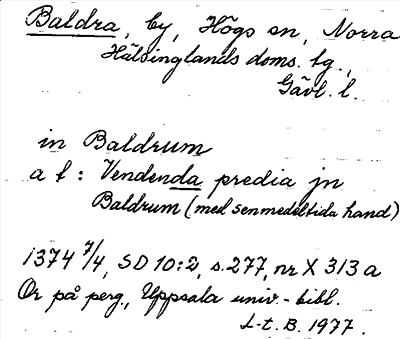 Baldra, by, Högs sn, Norra
Hälsinglands doms. tg.,
Gävl. l.
in Baldrum
a t : Vendenda predia jn
Baldrum (med senmedeltida hand)
1374 7/4, SD 10:2, s. 277, nr X 313 a
Or på perg., Uppsala univ.-bibl.
L-t. B. 1977.